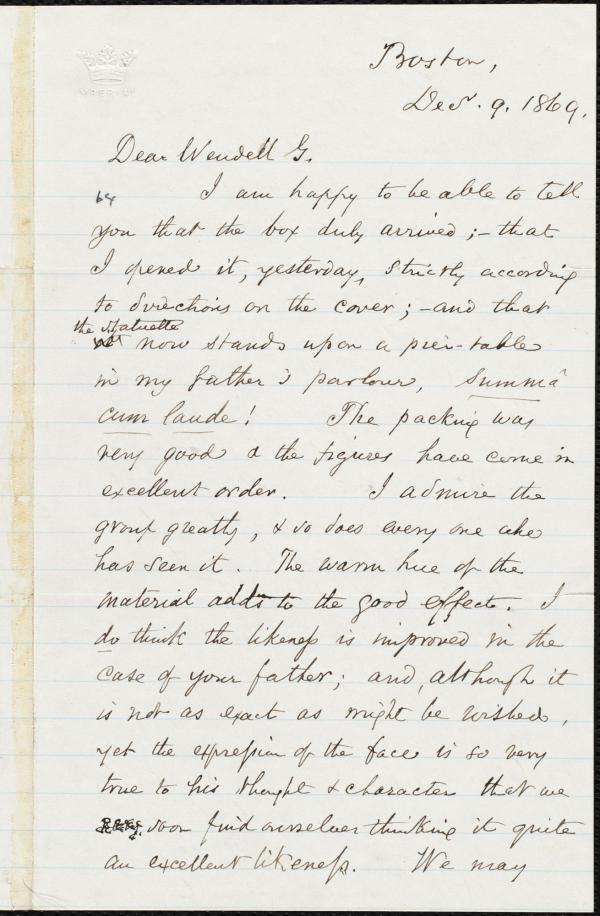 IMPERIAL
Boston,
Decr. 9. 1869.
Dear Wendell G.
I am happy to be able to tell
you that the box duly arrived; - that
I opened it, yesterday, strictly according
to directions on the cover; - and that
the statuette
now stands upon a pier-table
in my father's parlour, summâ
cum laude! The packing was
very good & the figures have come in
excellent order. I admire the
group greatly, & so does every one who
has seen it. The warm hue of the
material adds to the good effect. I
do think the likeness is improved in the
case of your father; and, although it
is not as exact as might be wished,
yet the expression of the face is so very
true to his thought & character that we
soon find ourselves thinking it quite
an excellent likeness. We may